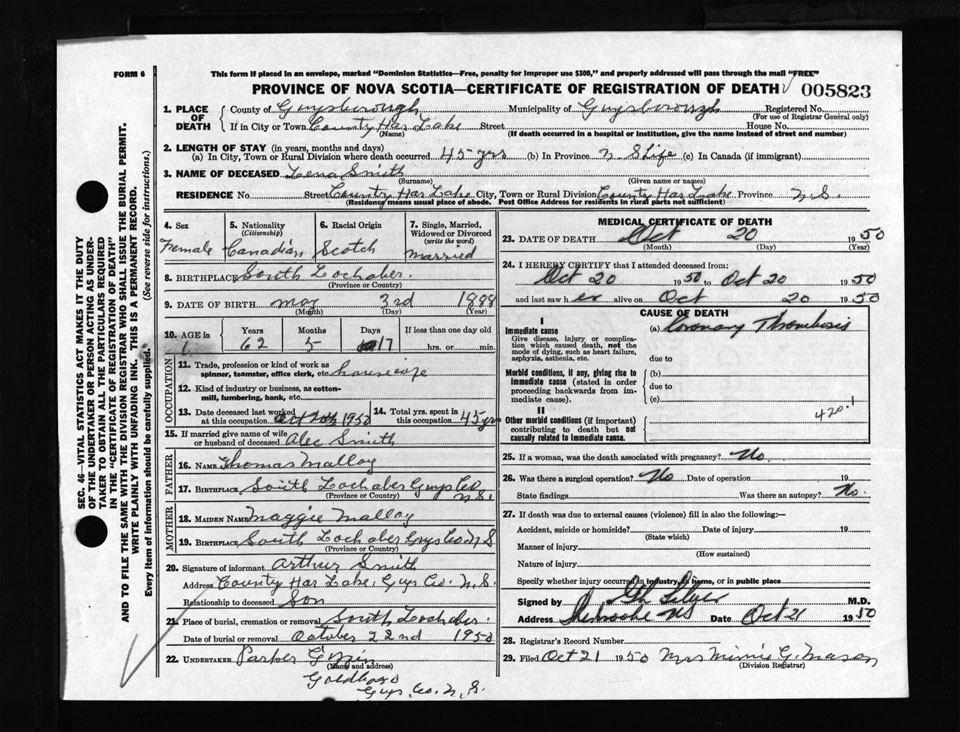 FORM 6
This form if placed in an envelope, marked "Dominion Statistics—Free, penalty for improper use $300," and properly addressed will pass through the mail "FREE"
PROVINCE OF NOVA SCOTIA—CERTIFICATE OF REGISTRATION OF DEATH 005823
1. PLACE OF DEATH County of Guysborough Municipality of Guysborough Registered No.
(For use of Registrar General only)
If in City or Town County Har Lake Street House No.
(Name) (If death occurred in a hospital or institution, give the name instead of street and number)
2. LENGTH OF STAY (in years, months and days)
(a) In City, Town or Rural Division where death occurred 45 yrs (b) In Province N S Life (c) In Canada (if immigrant)
3. NAME OF DECEASED Lena Smith
(Surname) (Given name or names)
RESIDENCE No. Street County Har Lake City, Town or Rural Division County Har Lake Province N.S.
(Residency means usual place of abode. Post Office Address for residents in rural parts not sufficient)
4. Sex Female
5. Nationality (Citizenship) Canadian
6. Racial Origin Scotch
7. Single, Married, Widowed or Divorced (write the word) Married
8. BIRTHPLACE South Lochaber.
(Province or Country)
9. DATE OF BIRTH May 3rd 1888
(Month) (Day) (Year)
10. AGE in Years Months Days If less than one day old
62 5 17 hrs. or min.
OCCUPATION
11. Trade, profession or kind of work as spinner, teamster, office clerk, etc. housewife
12. Kind of industry or business, as cotton-mill, lumbering, bank, etc.
13. Date deceased last worked at this occupation Oct 20th 1950
14. Total yrs. spent in this occupation 45 yrs
15. If married give name of wife or husband of deceased Alec Smith
FATHER
16. NAME Thomas Malloy
17. BIRTHPLACE South Lochaber Guys Co N.S.
(Province or Country)
MOTHER
18. MAIDEN NAME Maggie Malloy
19. BIRTHPLACE South Lochaber Guys Co N S
(Province or Country)
20. Signature of informant Arthur Smith
Address County Har Lake, Guys Co. N.S.
Relationship to deceased Son
21. Place of burial, cremation or removal South Lochaber.
Date of burial or removal October 22nd 1950
22. UNDERTAKER Parker
(Name and address)
Guys. Co. N. S.
MEDICAL CERTIFICATE OF DEATH
23. DATE OF DEATH Oct 20 1950
(Month) (Day) (Year)
24. I HEREBY CERTIFY that I attended deceased from:
Oct 20 1950 to Oct 20 1950
and last saw her alive on Oct 20 1950
CAUSE OF DEATH
I
Immediate cause (a) Coronary Thrombosis
Give disease, injury or complication which caused death, not the mode of dying, such as heart failure, asphyxia, asthenia, etc.
due to
Morbid conditions, if any, giving rise to immediate cause (stated in order proceeding backwards from immediate cause).
(b)
due to
(c)
II
Other morbid conditions (if important) contributing to death but not causally related to immediate cause.
420.1
25. If a woman, was the death associated with pregnancy? No.
26. Was there a surgical operation? No Date of operation 19
State findings Was there an autopsy? No.
27. If death was due to external causes (violence) fill in also the following:—
Accident, suicide or homicide? Date of injury 19
(State which)
Manner of injury
(How sustained)
Nature of injury
Specify whether injury occurred in industry, in home, or in public place
Signed by M.D.
Address Sherbrooke NS Date Oct 21 1950
28. Registrar's Record Number
29. Filed Oct 21 1950 Mrs Minnie G. Mason
(Division Registrar)
SEC. 46—VITAL STATISTICS ACT MAKES IT THE DUTY
OF THE UNDERTAKER OR PERSON ACTING AS UNDER-
TAKER TO OBTAIN ALL THE PARTICULARS REQUIRED
IN THE "CERTIFICATE OF REGISTRATION OF DEATH"
AND TO FILE THE SAME WITH THE DIVISION REGISTRAR WHO SHALL ISSUE THE BURIAL PERMIT.
WRITE PLAINLY WITH UNFADING INK. THIS IS A PERMANENT RECORD.
Every item of information should be carefully supplied. (See reverse side for instructions.)